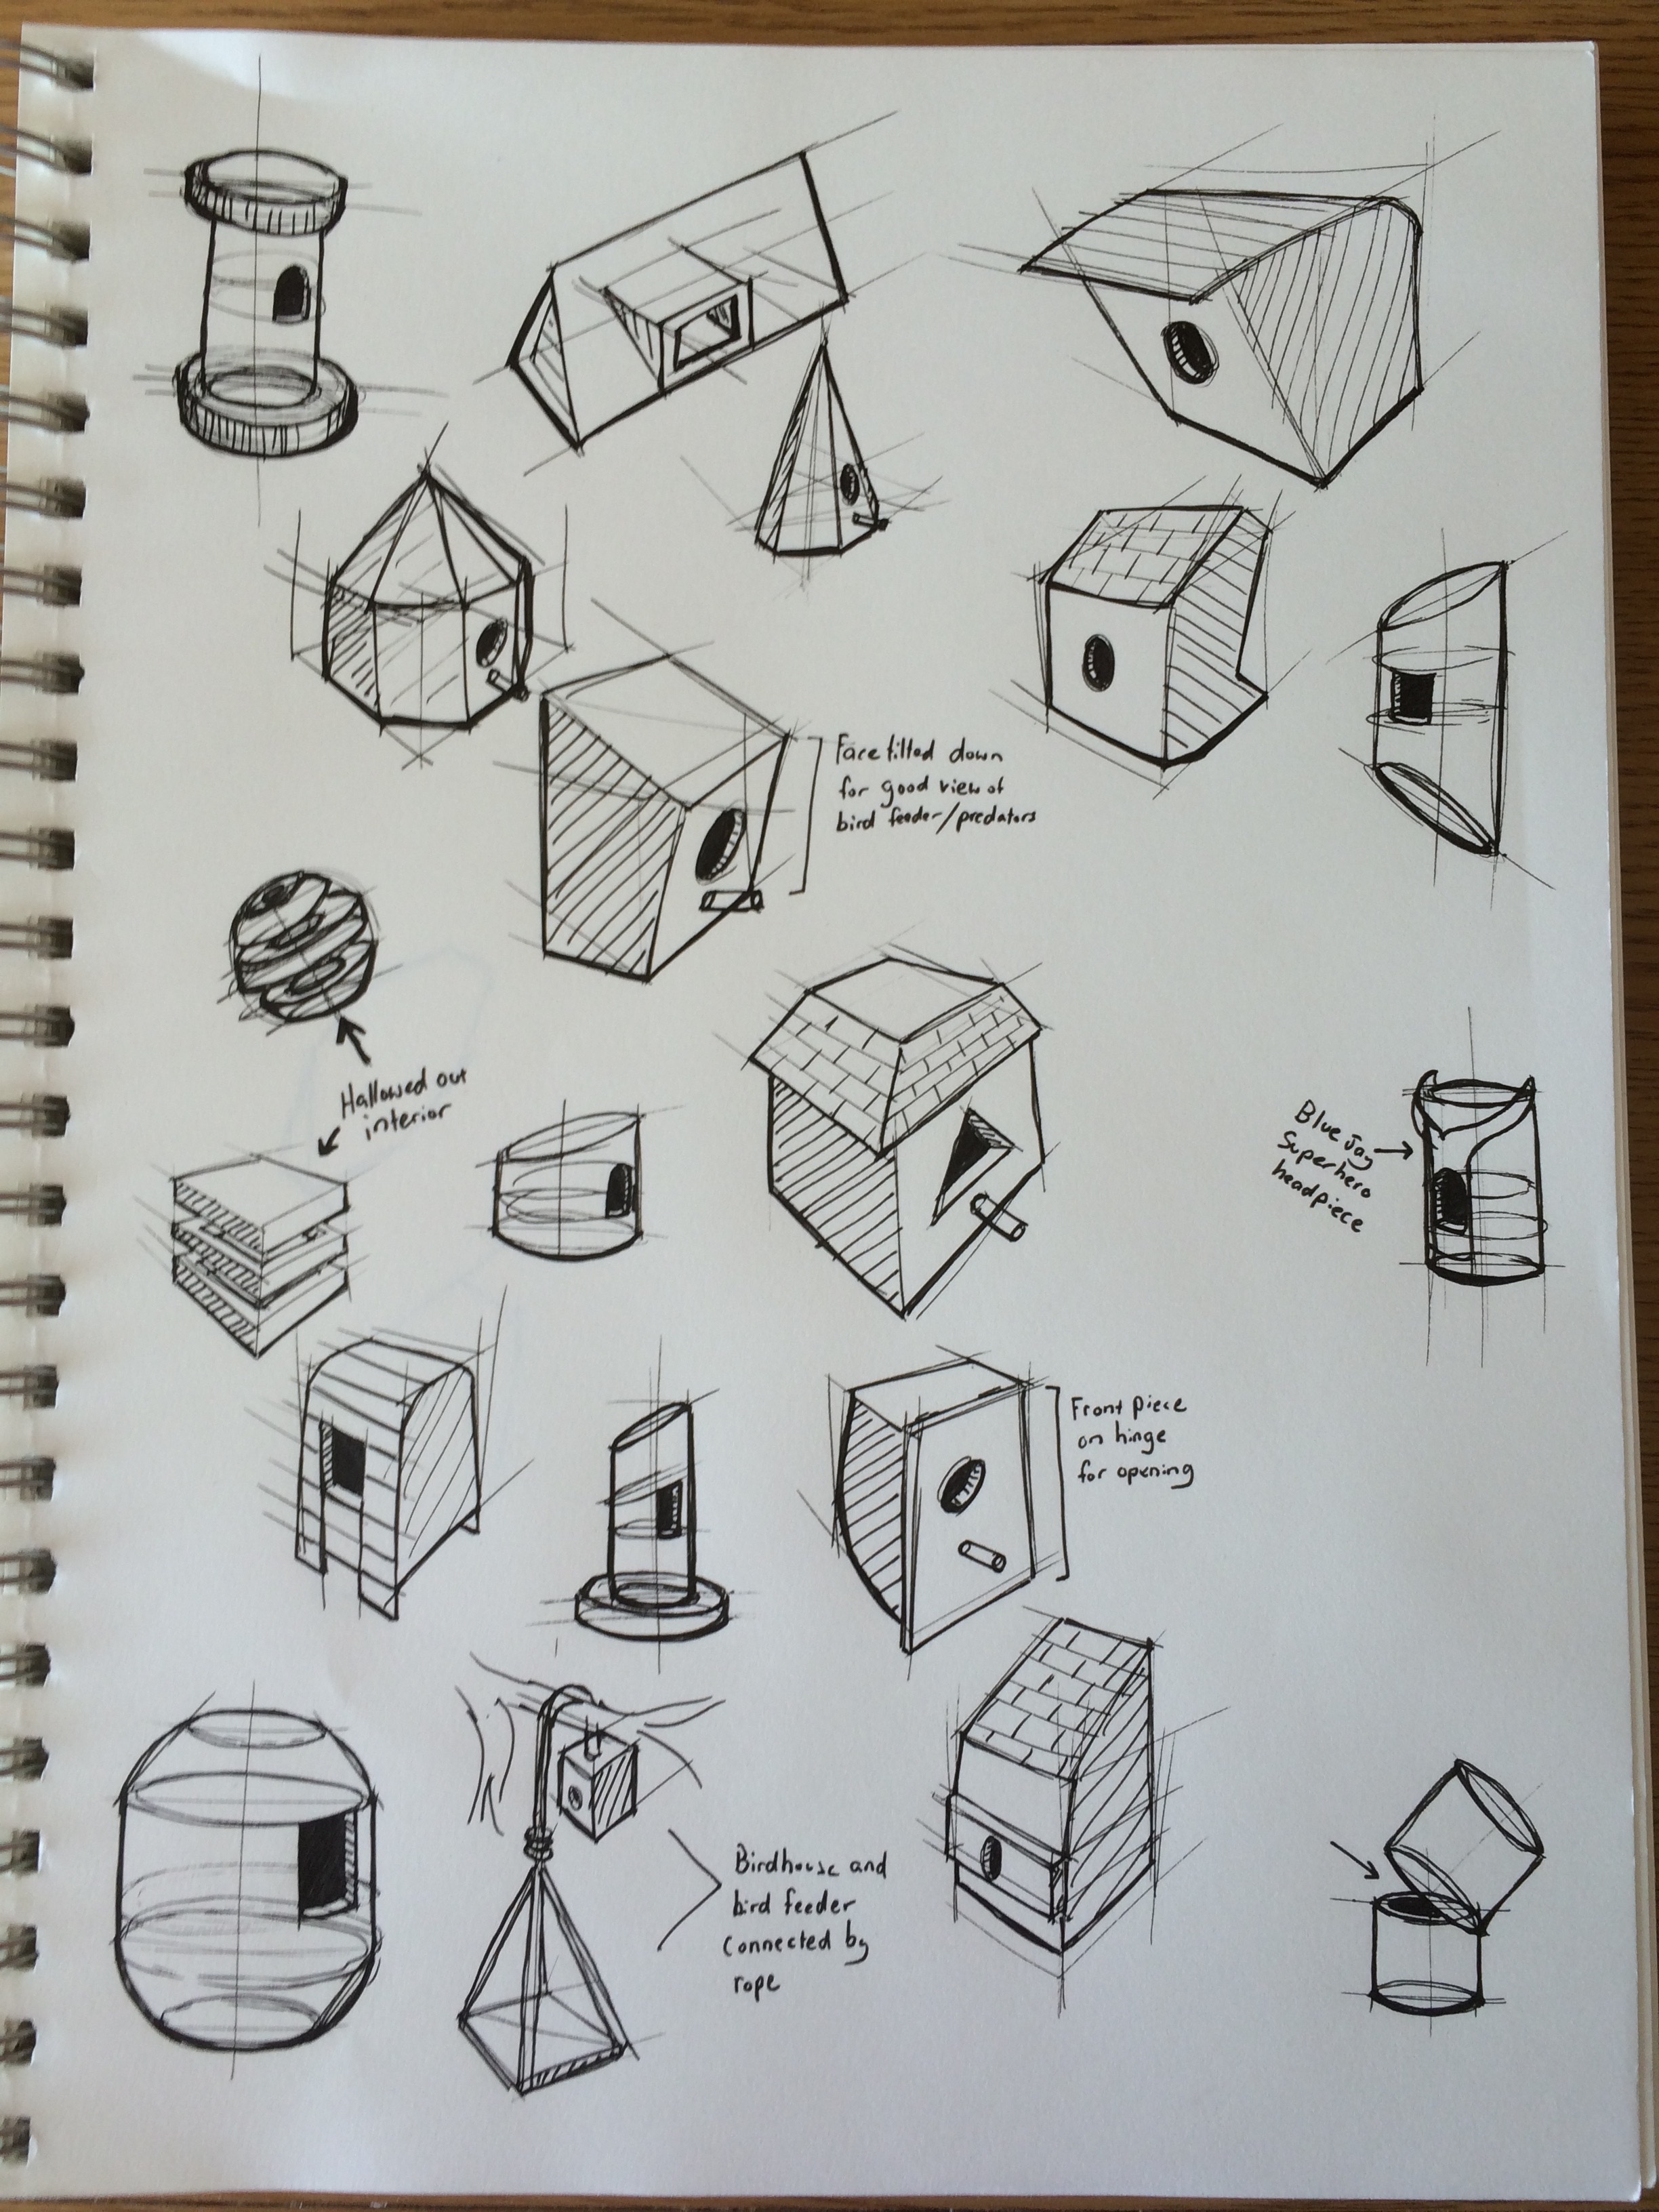 Face tilted down
for good view of
bird feeder/predators
Hallowed out
interior
Blue Jay
Superhero
headpiece
Front piece
on hinge
for opening
Birdhouse and
bird feeder
connected by
rope